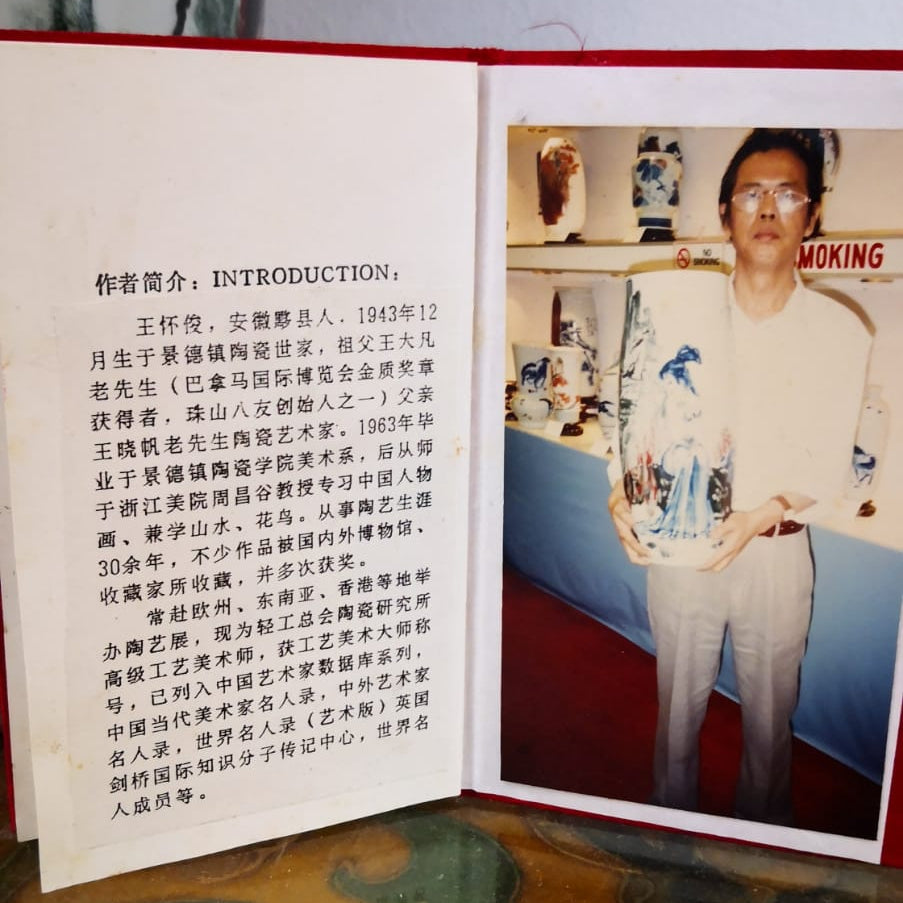 作者简介：INTRODUCTION：
王怀俊，安徽黟县人．1943年12
月生于景德镇陶瓷世家，祖父王大凡
老先生（巴拿马国际博览会金质奖章
获得者，珠山八友创始人之一）父亲
王晓帆老先生陶瓷艺术家。1963年毕
业于景德镇陶瓷学院美术系，后从师
于浙江美院周昌谷教授专习中国人物
画、兼学山水、花鸟。从事陶艺生涯
30余年，不少作品被国内外博物馆、
收藏家所收藏，并多次获奖。
常赴欧州、东南亚、香港等地举
办陶艺展，现为轻工总会陶瓷研究所
高级工艺美术师，获工艺美术大师称
号，已列入中国艺术家数据库系列，
中国当代美术家名人录，中外艺术家
名人录，世界名人录（艺术版）英国
剑桥国际知识分子传记中心，世界名
人成员等。
NO
SMOKING
MOKING